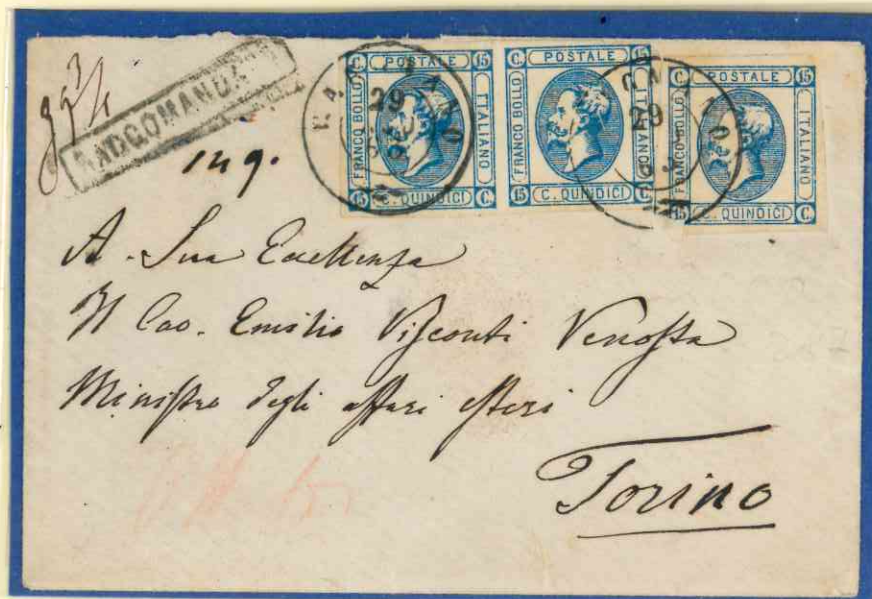 RACCOMANDATA
C. POSTALE 15
FRANCO BOLLO
ITALIANO
15 C. QUINDICI C
C. POSTALE 15
FRANCO BOLLO
ITALIANO
15 C. QUINDICI C
C. POSTALE 15
FRANCO BOLLO
ITALIANO
15 C. QUINDICI C
29
29
A Sua Eccellenza
Il Cav. Emilio Visconti Venosta
Ministro degli affari Esteri
Torino